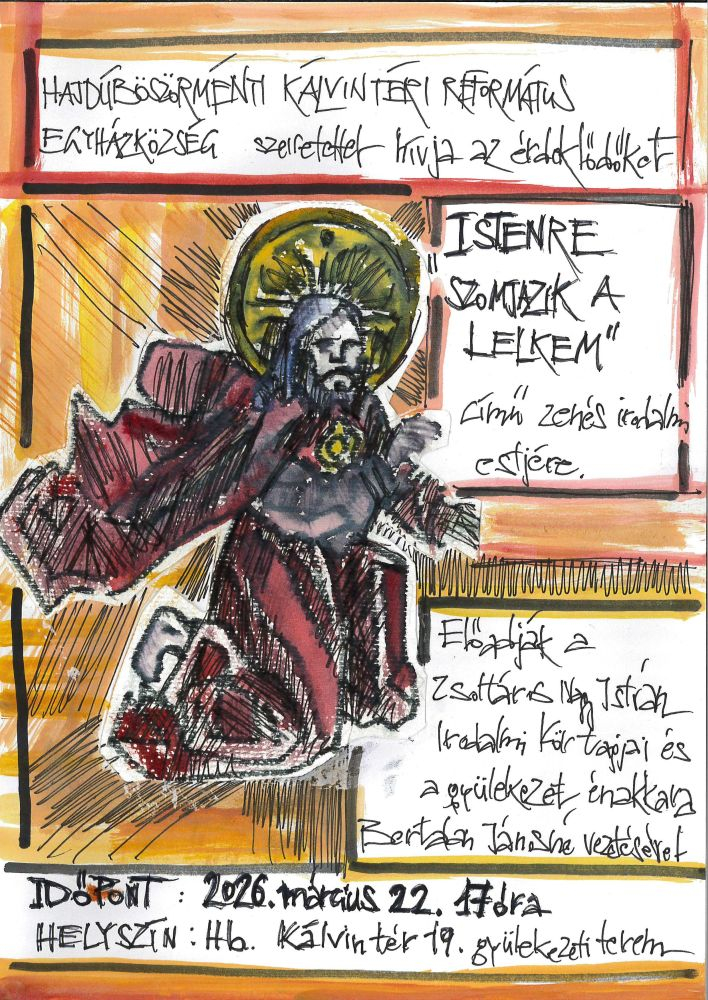 HAJDÚBÖSZÖRMÉNYI KÁLVINTÉRI REFORMÁTUS
EGYHÁZKÖZSÉG szeretettel hívja az érdeklődőket
"ISTENRE
SZOMJAZIK A
LELKEM"
című zenés irodalmi
estjére.
Előadják a
Zsoltáros Nagy István
Irodalmi Kör tagjai és
a gyülekezet énekkara
Bertalan Jánosné vezetésével
IDŐPONT : 2026. március 22. 17 óra
HELYSZÍN : Hb. Kálvin tér 19. gyülekezeti terem